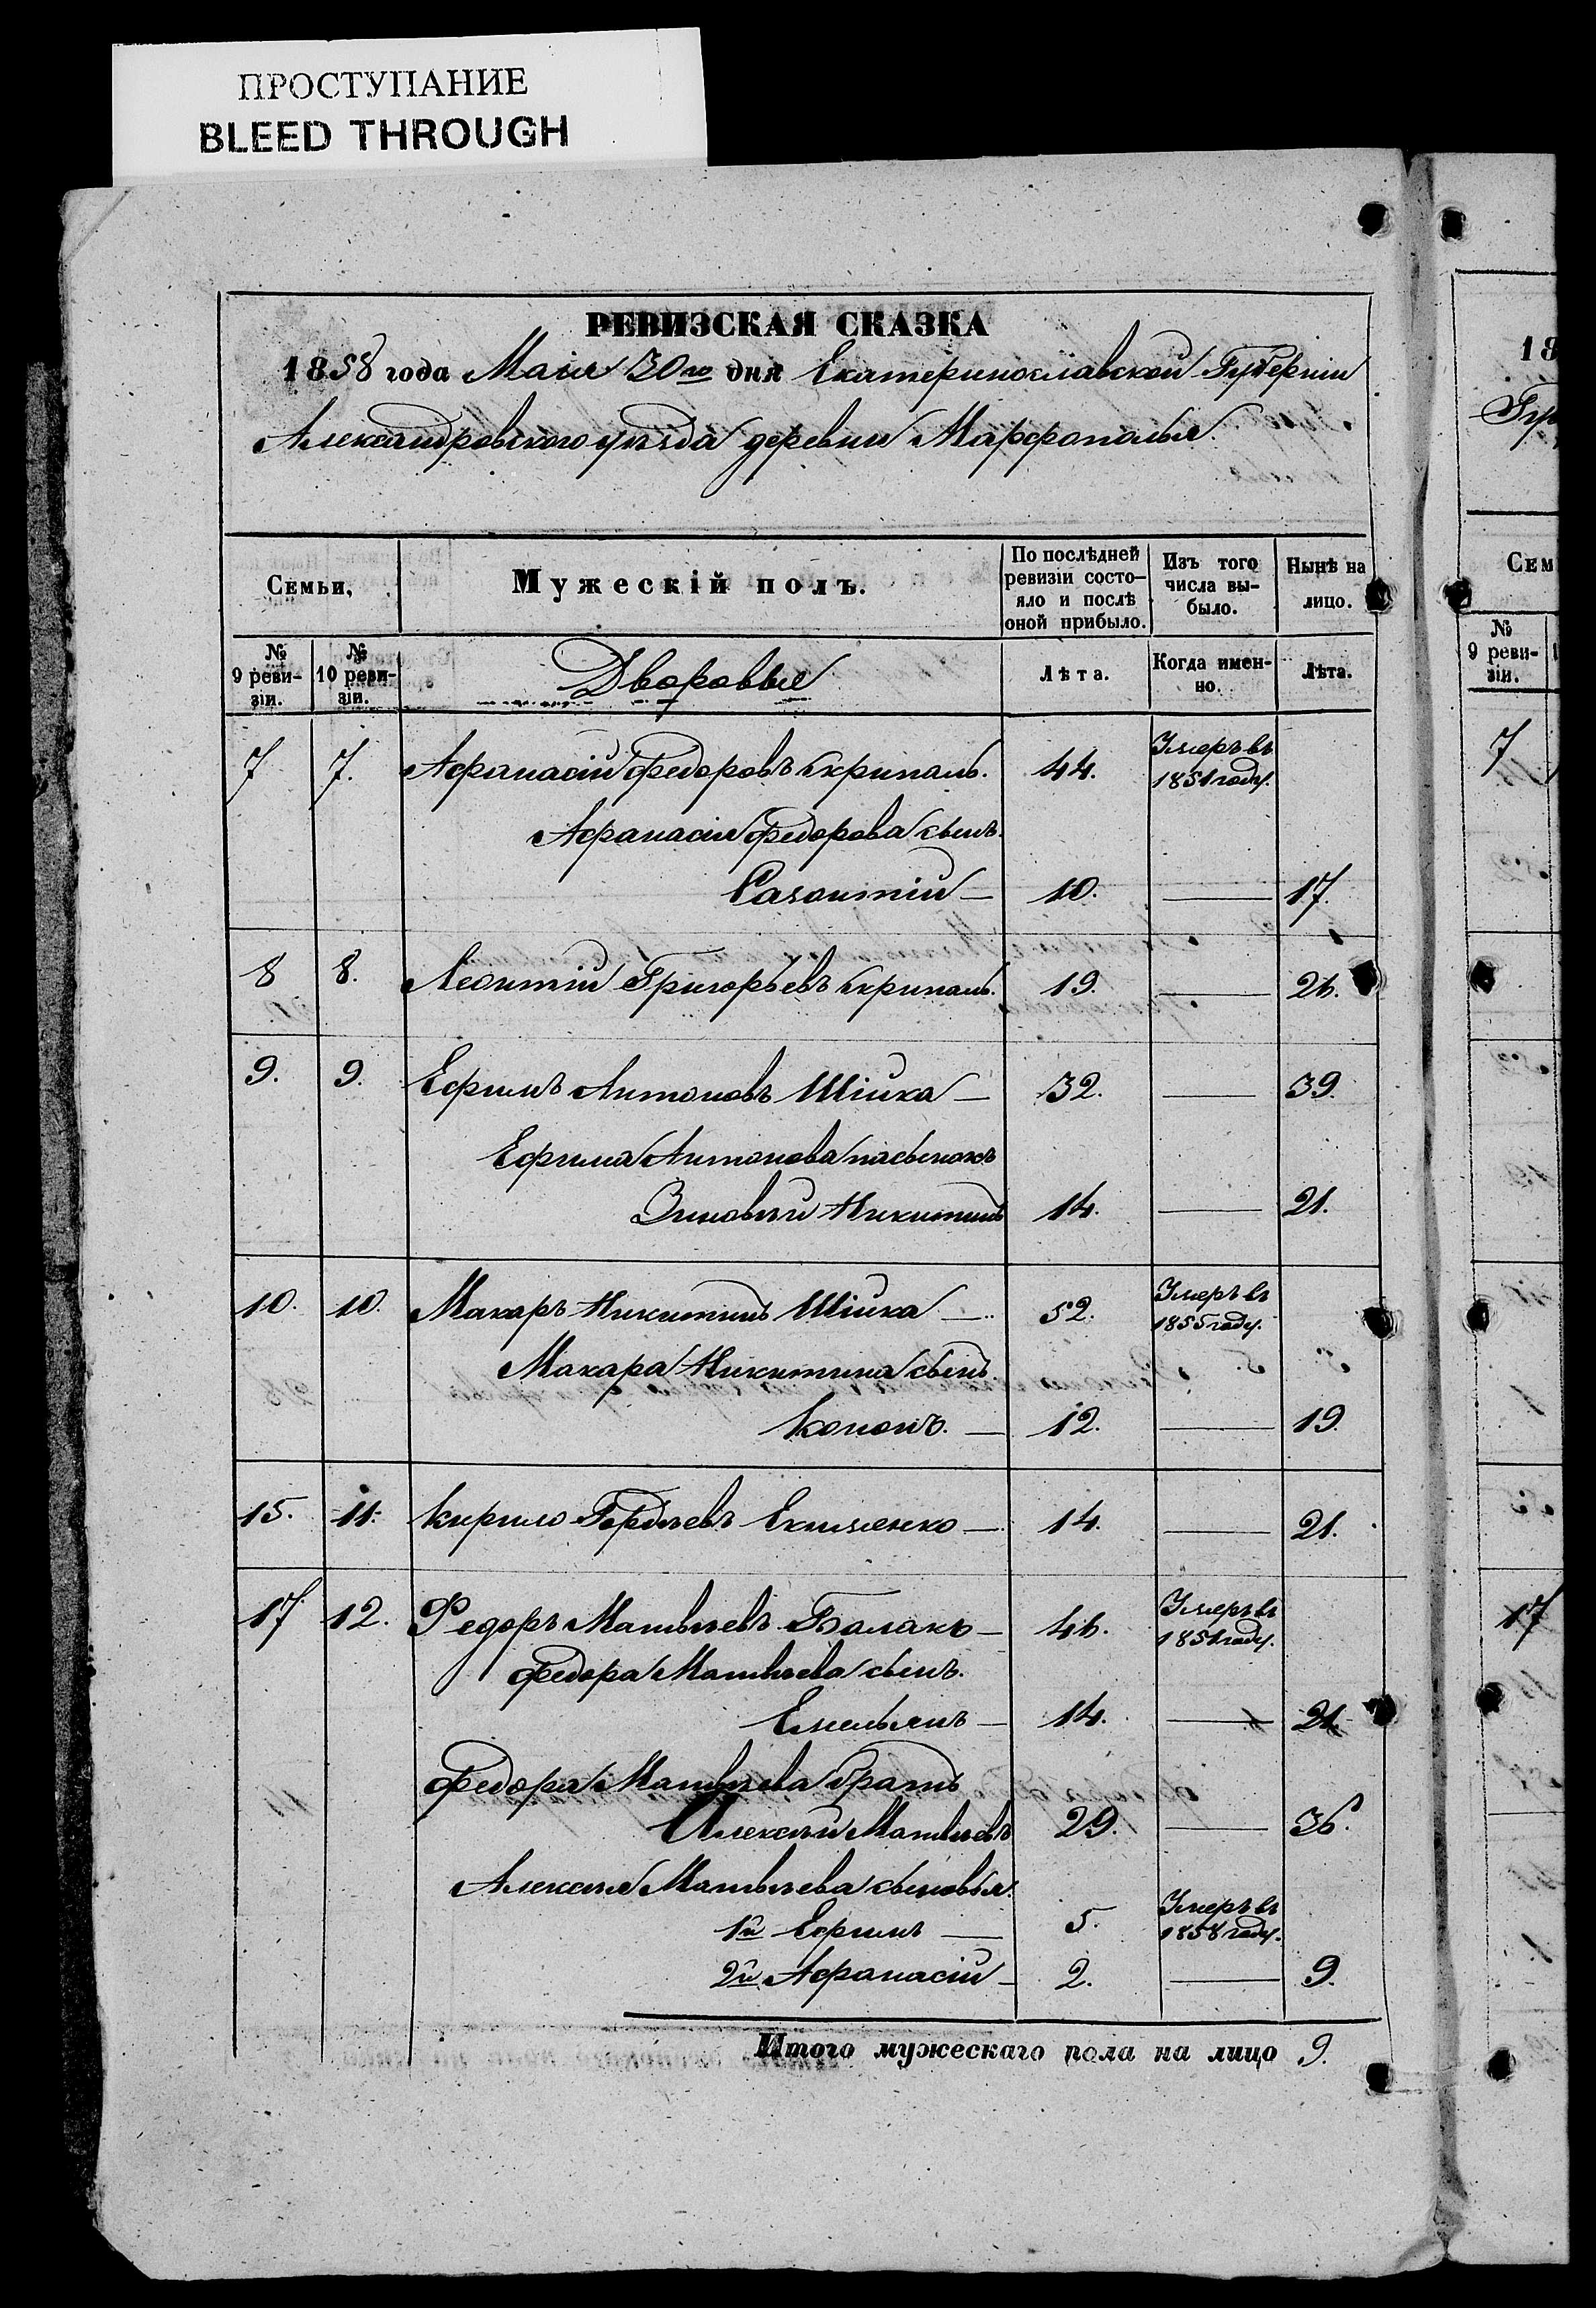 ПРОСТУПАНИЕ
BLEED THROUGH
РЕВИЗСКАЯ СКАЗКА
1858 года Маия 30го дня Екатеринославской Губернии
Александровского уѣзда деревни Марфополья.
Семьи, Мужескій полъ. По послѣдней ревизіи состо- яло и послѣ оной прибыло. Изъ того числа вы- было. Нынѣ на лицо.
№ 9 реви- зіи. № 10 реви- зіи. Дворовые Лѣта. Когда имен- но. Лѣта.
7 7. Афанасій Федоровъ Скрипаль. 44. Умеръ въ 1851 году.
Афанасія Федорова сынъ
Созонтій — 10. — 17.
8 8. Леонтій Григорьевъ Скрипаль. 19. — 26.
9. 9. Ефимъ Антоновъ Шійка — 32. — 39.
Ефима Антонова пасынокъ
Зиновій Никитинъ 14. — 21.
10. 10. Макаръ Никитинъ Шійка — 52. Умеръ въ 1855 году.
Макара Никитина сынъ
Кононъ. — 12. — 19.
15. 11. Кирило Гордѣевъ Екименко — 14. — 21.
17 12. Федоръ Матвѣевъ Балакъ — 46. Умеръ въ 1851 году.
Федора Матвѣева сынъ.
Емельянъ — 14. — 21.
Федора Матвѣева братъ
Алексѣй Матвѣевъ 29. — 36.
Алексѣя Матвѣева сыновья:
1й Ефимъ — 5. Умеръ въ 1858 году.
2й Афанасій — 2. — 9.
Итого мужескаго пола на лицо 9.
18
Гу
Сем
№
9 реви-
зіи.
7
17